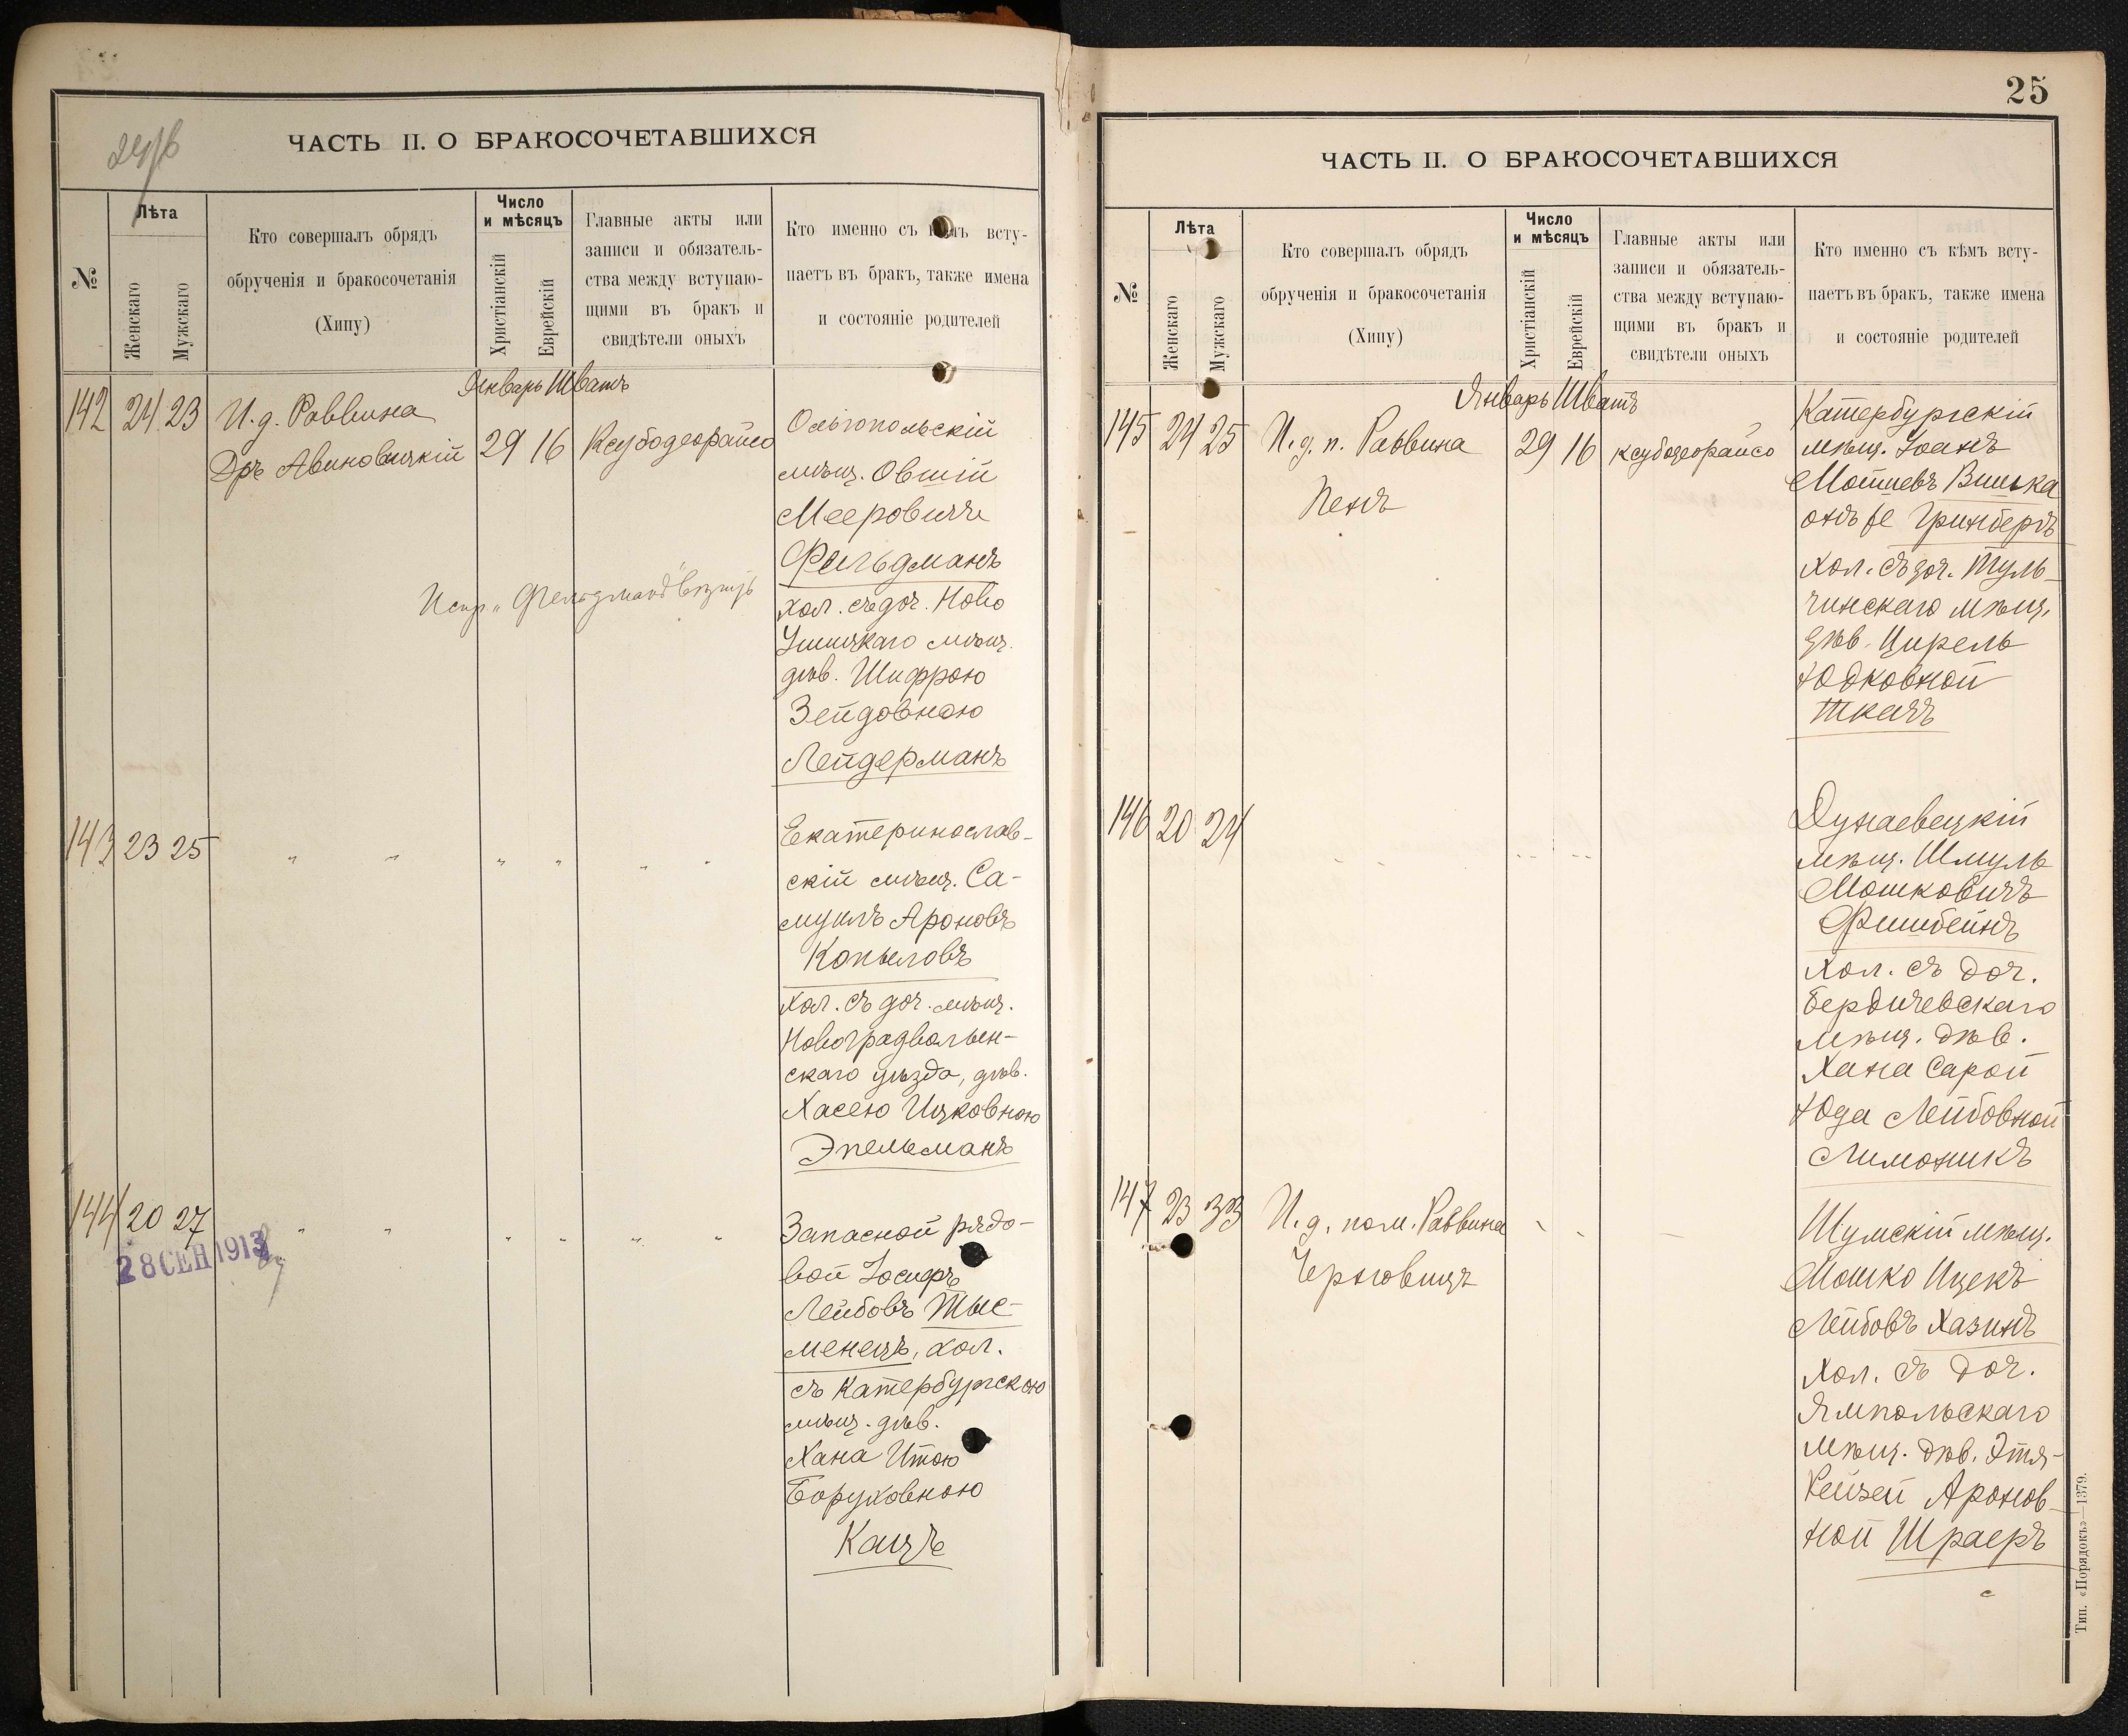 24/б
ЧАСТЬ II. О БРАКОСОЧЕТАВШИХСЯ
№
Лѣта
Женскаго
Мужскаго
Кто совершалъ обрядъ
обрученія и бракосочетанія
(Хипу)
Число
и мѣсяцъ
Христіанскій
Еврейскій
Главные акты или
записи и обязатель-
ства между вступаю-
щими въ бракъ и
свидѣтели оныхъ
Кто именно съ вступ-
паетъ въ бракъ, также имена
и состояніе родителей
Январь Шватъ
142 24 23 И.д. Раввина
Дръ Авиновицкій 29 16 Ксубодеорайсо
Ольгопольскій
мѣщ. Овшій
Мееровичъ
Фельдманъ
хол. съ доч. Ново
Ушицкаго мѣщ.
дѣв. Шифрою
Зейдовною
Лейдерманъ
Испр. „Фельдманъ"
143 23 25 " " " " " "
Екатеринослав-
скій мѣщ. Са-
муилъ Ароновъ
Копыловъ
хол. съ доч. мѣщ.
Новоградволын-
скаго уѣзда, дѣв.
Хасею Ицковною
Эпельманъ
144 20 27 " " " " " "
28 СЕН 1913
Запасной рядо-
вой Іосифъ
Лейбовъ Тыс-
менецъ, хол.
съ Катербургскою
мѣщ. дѣв.
Хана Итою
Боруховною
Кацъ
25
ЧАСТЬ II. О БРАКОСОЧЕТАВШИХСЯ
№
Лѣта
Женскаго
Мужскаго
Кто совершалъ обрядъ
обрученія и бракосочетанія
(Хипу)
Число
и мѣсяцъ
Христіанскій
Еврейскій
Главные акты или
записи и обязатель-
ства между вступаю-
щими въ бракъ и
свидѣтели оныхъ
Кто именно съ кѣмъ всту-
паетъ въ бракъ, также имена
и состояніе родителей
Январь Шватъ
145 24 25 И.д.п. Раввина 29 16 ксубодеорайсо
Пенъ
Катербургскій
мѣщ. Іоанъ
Мотіевъ Винька
онъ же Гринбергъ
хол. съ доч. Туль-
чинскаго мѣщ.
дѣв. Цирель
Юдковной
Ткачъ
146 20 24
Дунаевецкій
мѣщ. Шмуль
Мошковичъ
Фишбейнъ
хол. съ доч.
Бердичевскаго
мѣщ. дѣв.
Хана Сарой
Юда Лейбовной
Лимоникъ
147 23 33 И.д. пом. Раввина
Черновицъ
Шумскій мѣщ.
Мошко Ицекъ
Лейбовъ Хазинъ
хол. съ доч.
Ямпольскаго
мѣщ. дѣв. Этя-
Рейзей Аронов-
ной Шраеръ
Тип. «Порядокъ»—1379.